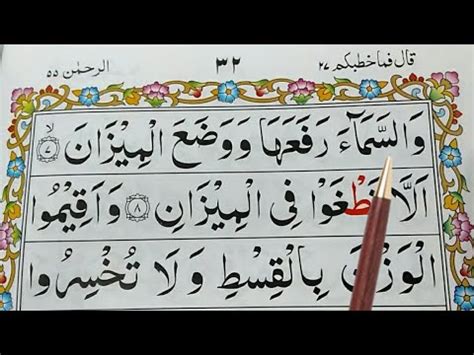 قال فماخطبكم ٢٧ ٣٢ الرحمٰن ۵۵
وَالسَّمَآءَ رَفَعَهَا وَوَضَعَ الْمِيْزَانَ ۙ‏﴿۷﴾
اَلَّا تَطْغَوْا فِى الْمِيْزَانِ ﴿۸﴾ وَاَقِيْمُوا
الْوَزْنَ بِالْقِسْطِ وَلَا تُخْسِرُوا